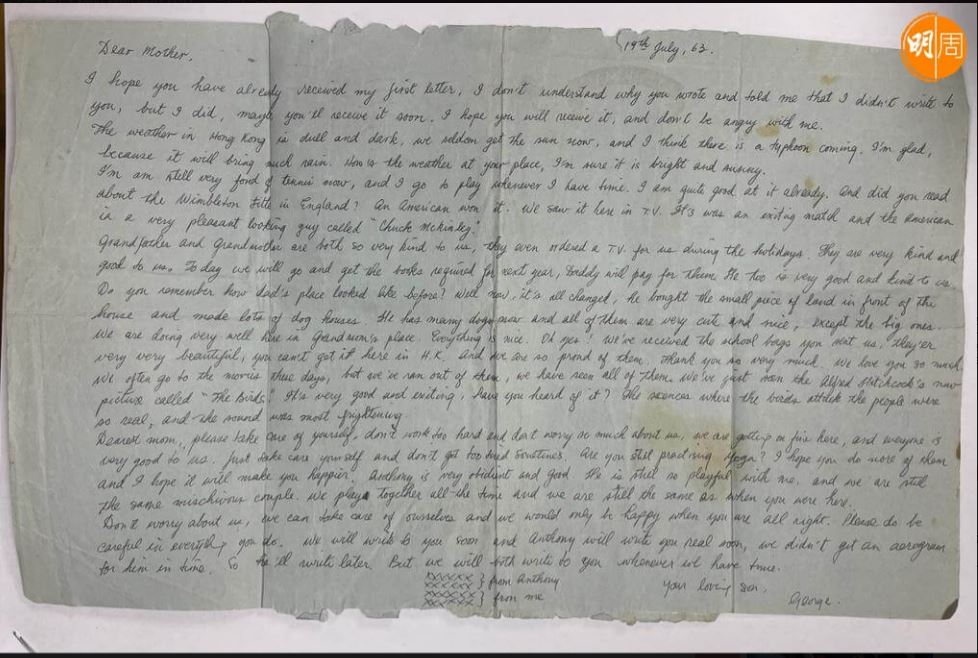 明周
19th July, 63.
Dear Mother,
I hope you have already received my first letter, I don't understand why you wrote and told me that I didn't write to
you, but I did, maybe you'll receive it soon. I hope you will receive it, and don't be angry with me.
The weather in Hong Kong is dull and dark, we seldon get the sun now, and I think there is a typhoon coming. I'm glad,
because it will bring much rain. How is the weather at your place, I'm sure it is bright and sunny.
I'm am still very fond of tennis now, and I go to play whenever I have time. I am quite good at it already. And did you read
about the Wimbledon in England? An American won it. We saw it here in T.V. It was an exiting match and the American
is a very pleasant looking guy called "Chuck Mckinley."
Grandfather and Grandmother are both so very kind to us, they even ordered a T.V. for us during the holidays. They are very kind and
good to us. To day we will go and get the books required for next year, Daddy will pay for them. He too is very good and kind to us.
Do you remember how dad's place looked like before? Well now, it's all changed, he bought the small piece of land in front of the
house and made lots of dog houses. He has many dogs now and all of them are very cute and nice, except the big ones.
We are doing very well here in Grandmum's place. Everything is nice. Oh yes! We've received the school bags you sent us, they'er
very very beautiful, you can't get it here in H.K. and we are so proud of them. Thank you so very much. We love you so much.
We often go to the movies these days, but we've ran out of them, we have seen all of them. We've just seen the Alfred Hitchcock's new
picture called "The Birds". It's very good and exiting, have you heard of it? The scences where the birds attack the people were
so real, and the sound was most frightening.
Dearest mom, please take care of yourself, don't work too hard and don't worry so much about us, we are getting on fine here, and everyone is
very good to us. Just take care yourself and don't get too tired sometimes. Are you still practising Yoga? I hope you do more of them
and I hope it will make you happier. Anthony is very obidient and good. He is still so playful with me, and we are still
the same mischivous couple. We play together all the time and we are still the same as when you were here.
Don't worry about us, we can take care of ourselves and we would only be happy when you are all right. Please do be
careful in everything you do. We will write to you soon and Anthony will write you real soon, we didn't get an aerogram
for him in time. So he'll write later. But we will both write to you whenever we have time.
XXXXX
XXXXX } from Anthony
XXXXX
XXXXX } from me
Your loving son,
George.